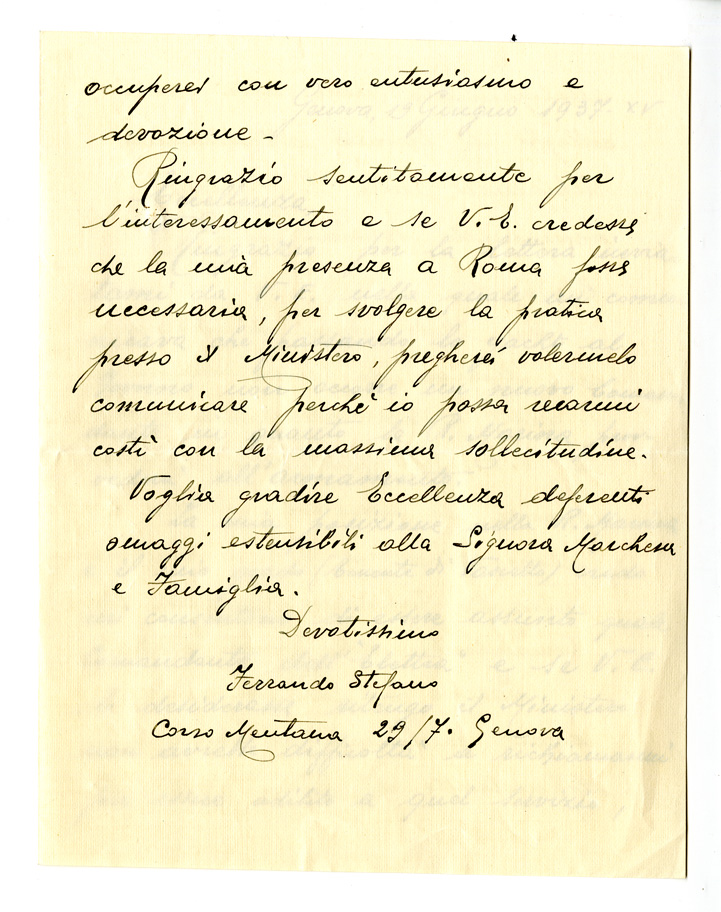 occuperei con vero entusiasmo e
devozione -
Ringrazio sentitamente per
l'interessamento e se V. E. credesse
che la mia presenza a Roma fosse
necessaria, per svolgere la pratica
presso il Ministero, pregherei volermelo
comunicare perché io possa recarmi
costì con la massima sollecitudine.
Voglia gradire Eccellenza deferenti
omaggi estensibili alla Signora Marchesa
e Famiglia.
Devotissimo
Ferrando Stefano
Corso Mentana 29/7. Genova